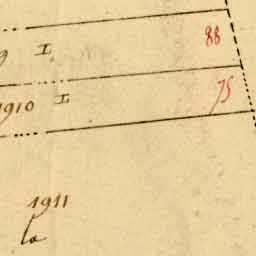 9 I 88
1910 I 75
1911
la